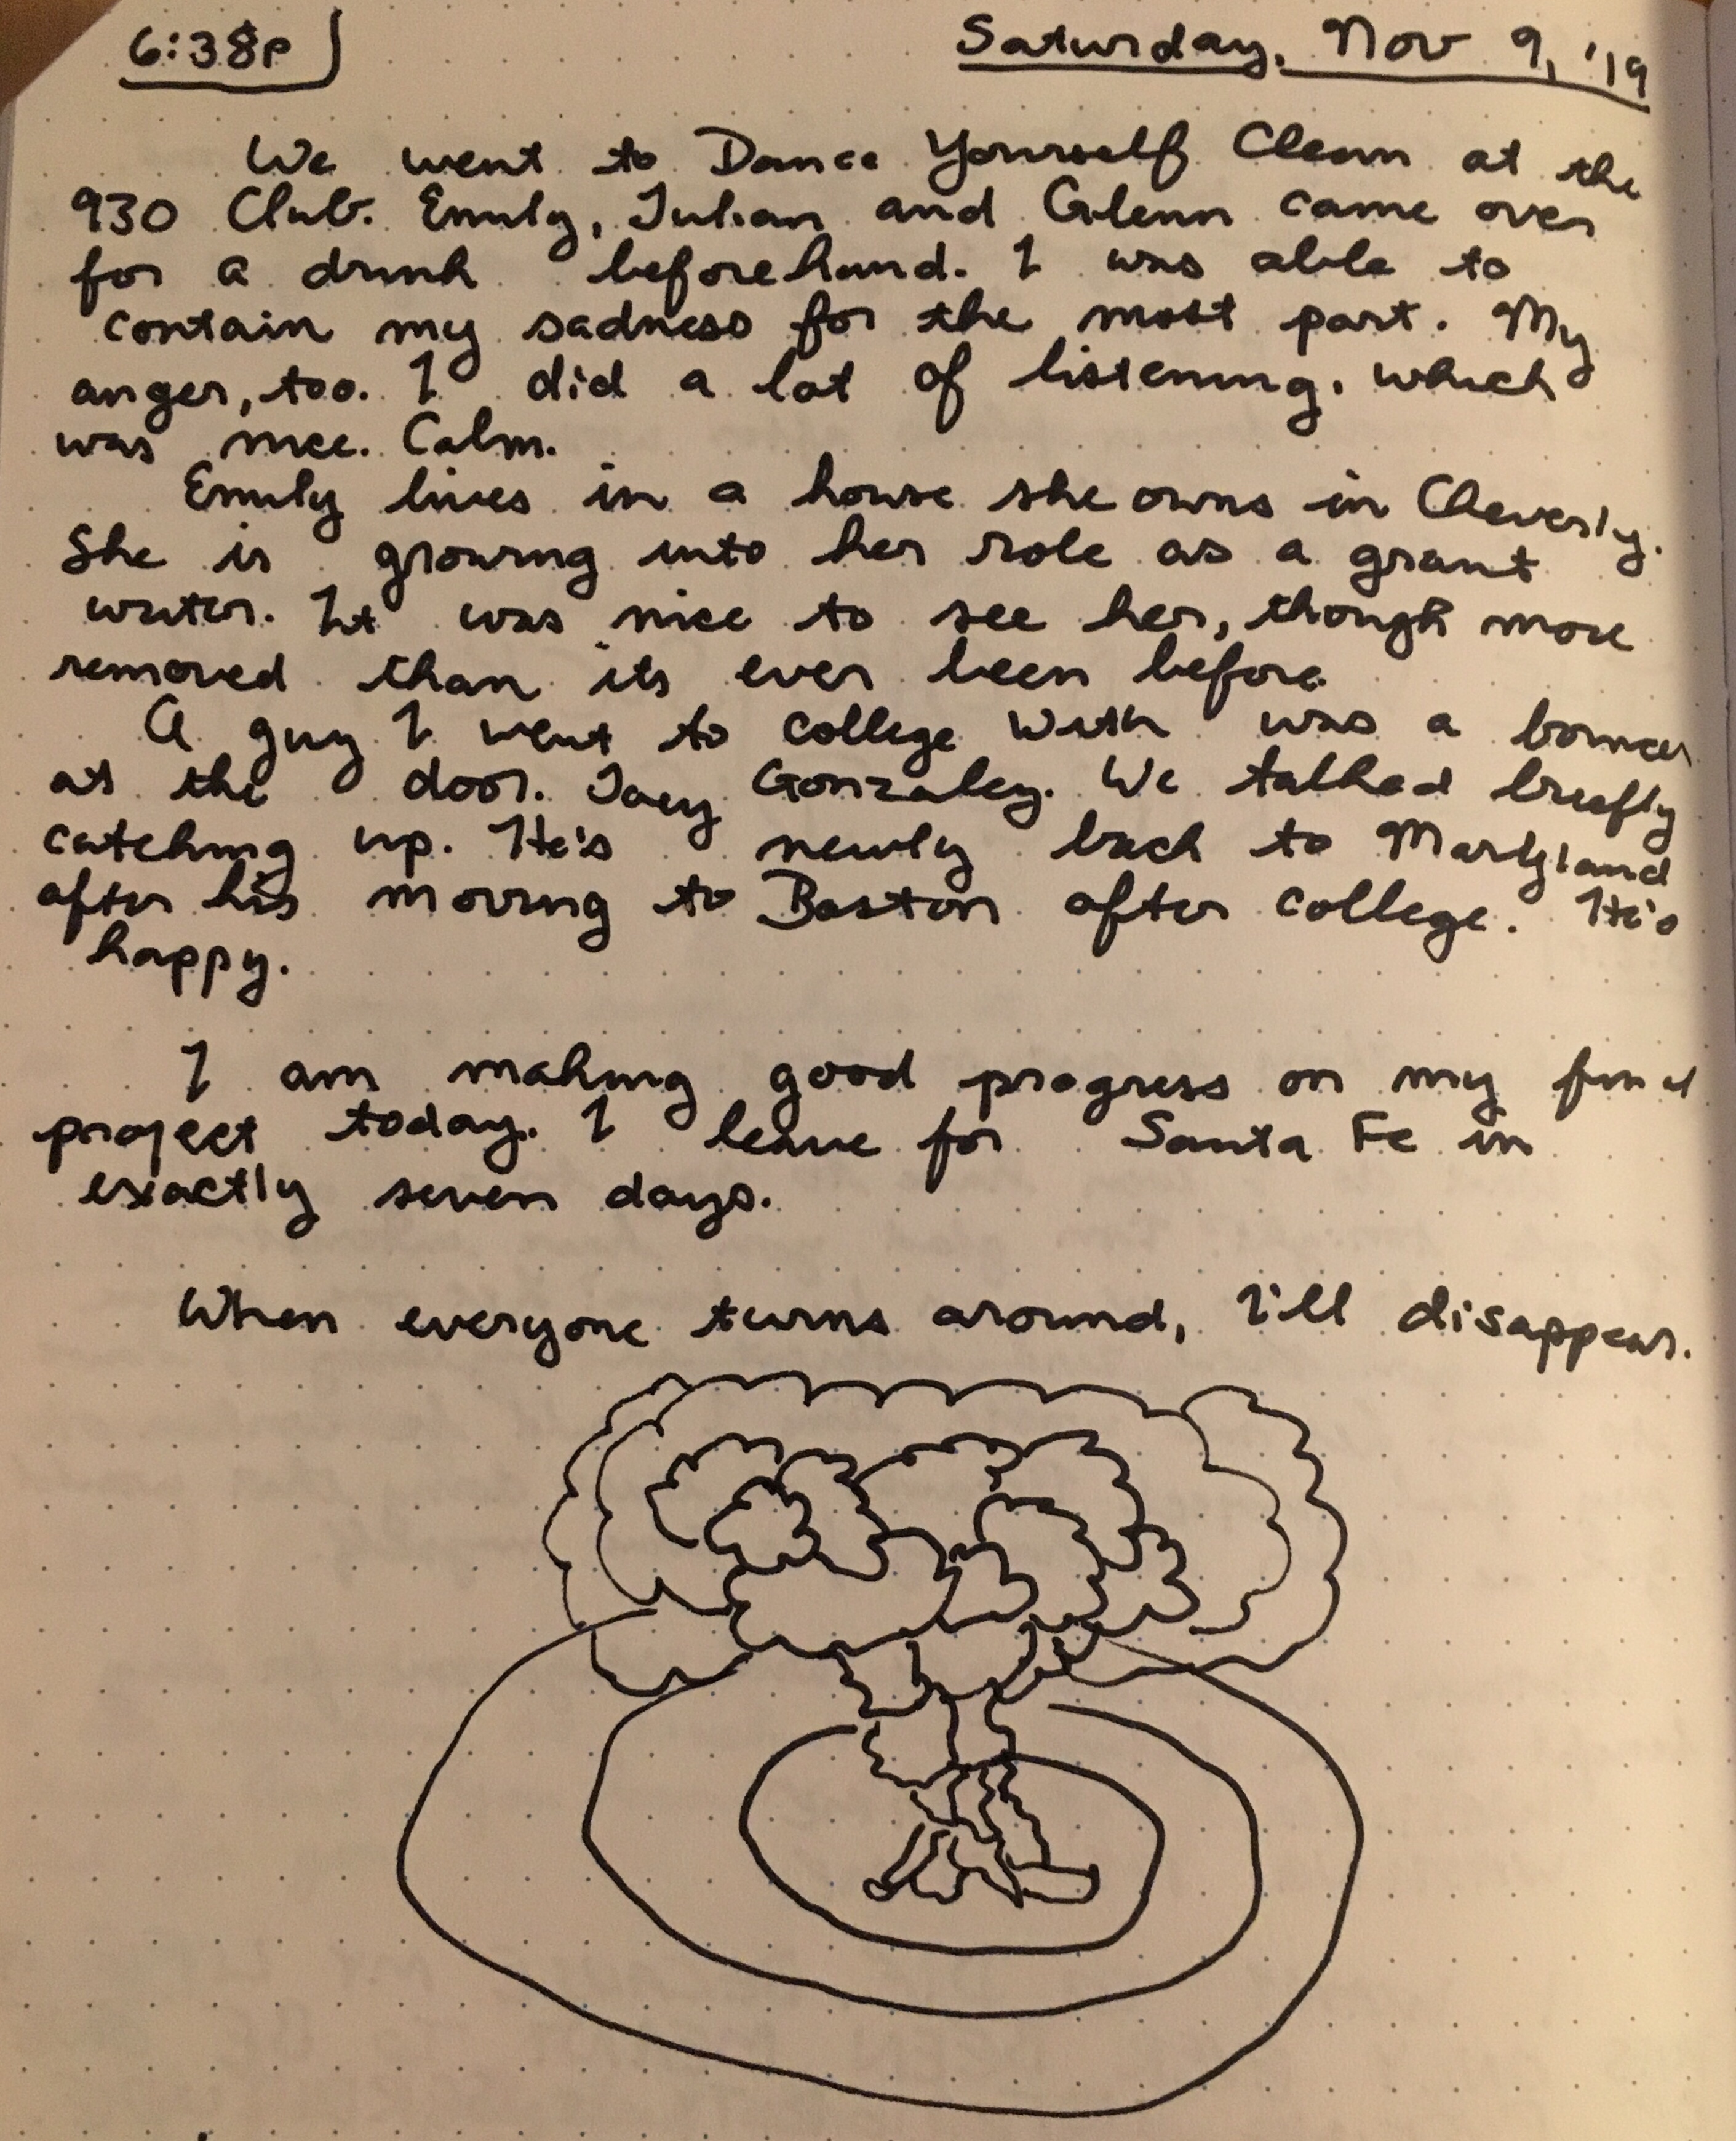 6:38p
Saturday, Nov 9, '19
We went to Dance Yourself Clean at the
930 Club. Emily, Julian and Glenn came over
for a drink beforehand. I was able to
contain my sadness for the most part. My
anger, too. I did a lot of listening, which
was nice. Calm.
Emily lives in a house she owns in Cheverly.
She is growing into her role as a grant
writer. It was nice to see her, though more
removed than its ever been before.
A guy I went to college with was a bouncer
at the door. Joey Gonzaley. We talked briefly
catching up. He's newly back to Maryland
after his moving to Boston after college. He's
happy.
I am making good progress on my final
project today. I leave for Santa Fe in
exactly seven days.
When everyone turns around, I'll disappear.